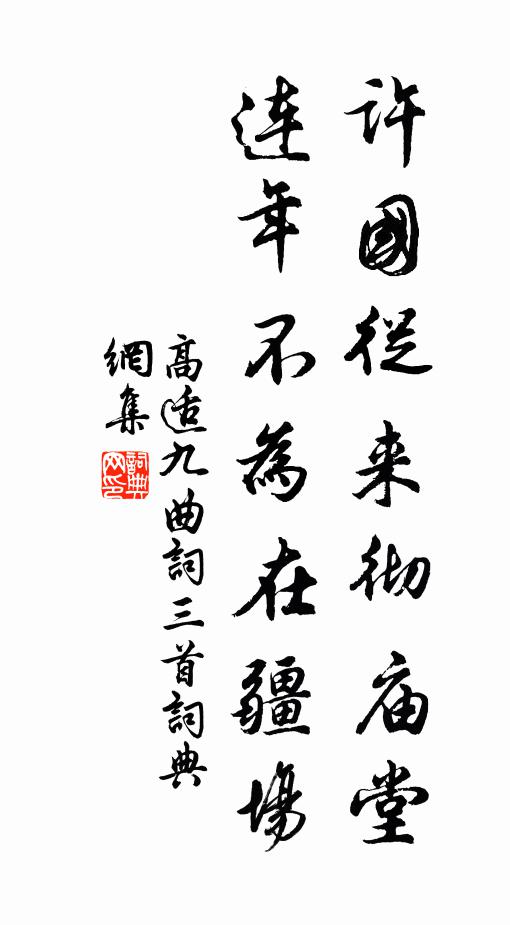 許國從来彻庙堂
連年不為在疆場
高适九曲詞三首詞典
網集
詞典网印